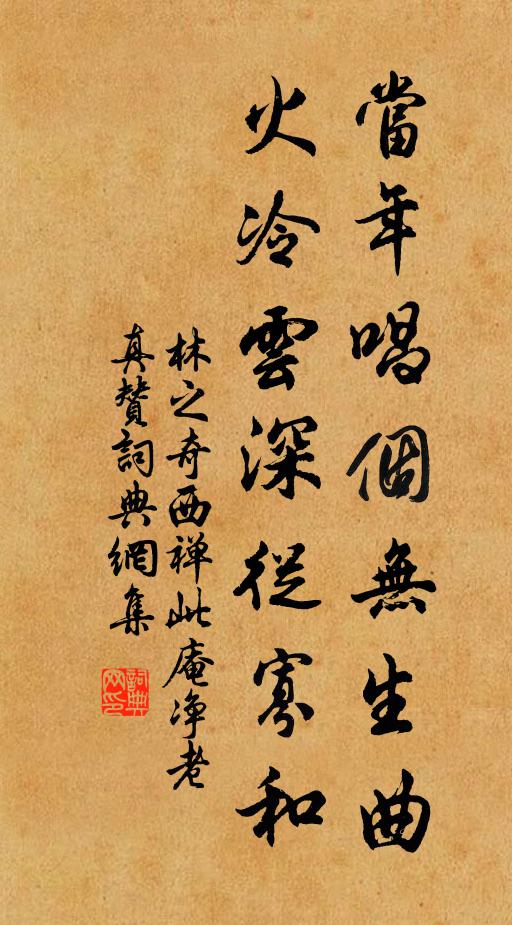 當年唱個無生曲
火冷雲深從寡和
林之奇西禅此庵净老
真賛詞典網集
詞典網印